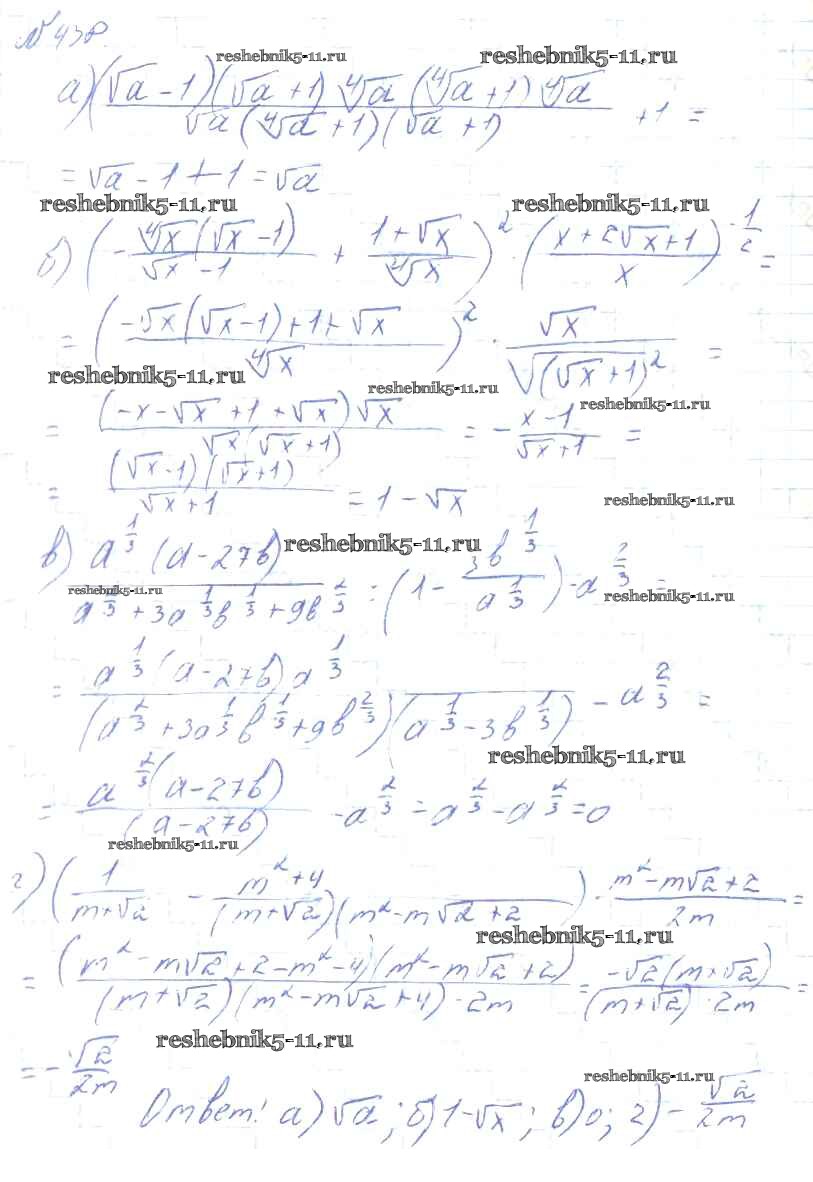 № 438.
reshebnik5-11.ru reshebnik5-11.ru
а) (√a - 1)(√a + 1) ∜a (∜a + 1) ∜a / √a (∜a + 1)(√a + 1) + 1 =
= √a - 1 + 1 = √a
reshebnik5-11.ru reshebnik5-11.ru
б) (- ∜x (√x - 1) / √x - 1 + 1 + √x / ∜x)² · (x + 2√x + 1 / x)^(-1/2) =
= (-√x (√x - 1) + 1 + √x / ∜x)² · √x / √(√x + 1)² =
reshebnik5-11.ru reshebnik5-11.ru
= (-x - √x + 1 + √x) √x / √x (√x + 1) = - x - 1 / √x + 1 =
reshebnik5-11.ru
= (√x - 1)(√x + 1) / √x + 1 = 1 - √x
reshebnik5-11.ru
в) a^(1/3) (a - 27b) / a^(2/3) + 3a^(1/3) b^(1/3) + 9b^(2/3) : (1 - 3b^(1/3) / a^(1/3)) - a^(2/3) =
reshebnik5-11.ru
reshebnik5-11.ru reshebnik5-11.ru
= a^(1/3) (a - 27b) a^(1/3) / (a^(2/3) + 3a^(1/3) b^(1/3) + 9b^(2/3))(a^(1/3) - 3b^(1/3)) - a^(2/3) =
reshebnik5-11.ru
= a^(2/3) (a - 27b) / (a - 27b) - a^(2/3) = a^(2/3) - a^(2/3) = 0
reshebnik5-11.ru
г) (1 / m + √2 - m² + 4 / (m + √2)(m² - m√2 + 2) · m² - m√2 + 2 / 2m =
reshebnik5-11.ru
= (m² - m√2 + 2 - m² - 4)(m² - m√2 + 2) / (m + √2)(m² - m√2 + 4) · 2m = -√2 (m + √2) / (m + √2) · 2m =
reshebnik5-11.ru
= - √2 / 2m
reshebnik5-11.ru
Ответ: а) √a; б) 1 - √x; в) 0; г) - √2 / 2m